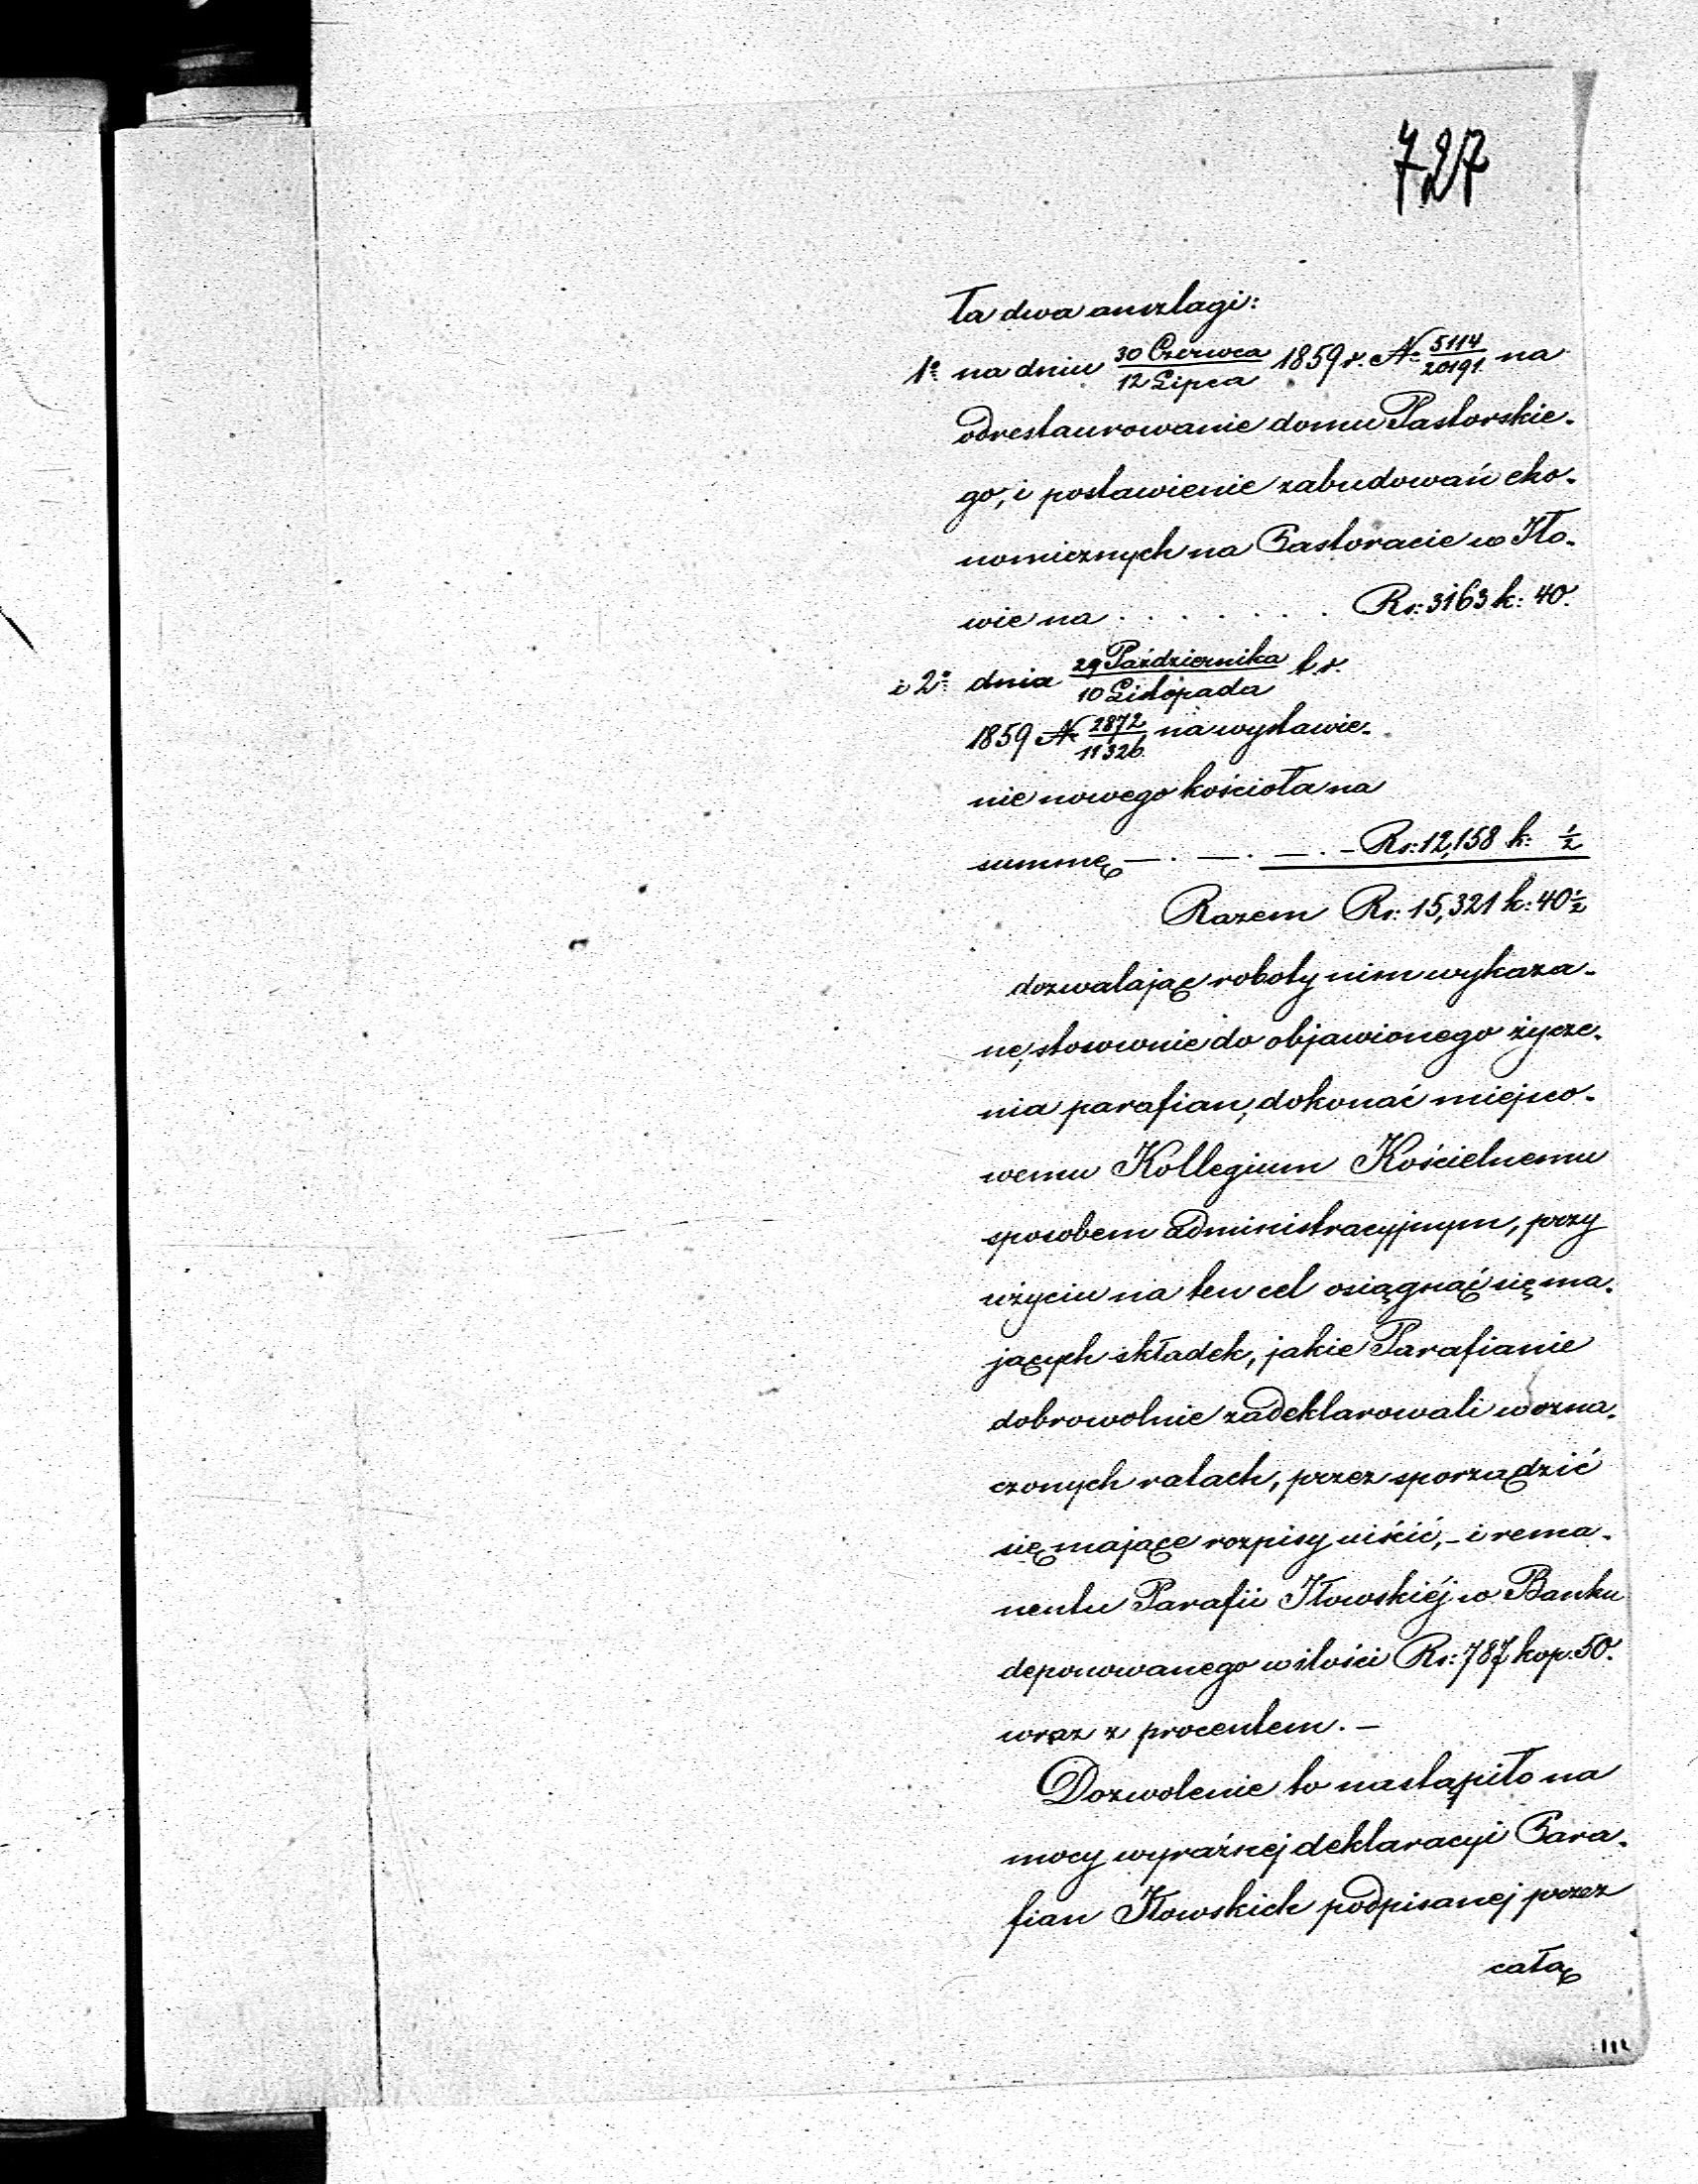 727
ła dwa anszlagi:
1º na dniu 30 Czerwca/12 Lipca 1859 r. Nº 5114/20191 na
odrestaurowanie domu Pastorskie-
go, i postawienie zabudowań eko-
nomicznych na Pastoracie w Iło-
wie na . . . . . . . Rs: 3163 k: 40.
i 2º dnia 29 Października/10 Listopada t. r.
1859 Nº 2872/11326 na wystawie-
nie nowego kościoła na
summę — . — . — . — Rs: 12,158 k: ½
Razem Rs: 15,321 k: 40½
dozwalając roboty nim wykaza-
ne, stosownie do objawionego życze-
nia parafian, dokonać miejsco-
wemu Kollegium Kościelnemu
sposobem administracyjnym, przy
użyciu na ten cel osiągnąć się ma-
jących składek, jakie Parafianie
dobrowolnie zadeklarowali w ozna-
czonych ratach, przez sporządzić
się mające rozpisy uiścić, - i rema-
nentu Parafii Iłowskiéj w Banku
deponowanego w ilości Rs: 787 kop. 50.
wraz z procentem. —
Dozwolenie to nastąpiło na
mocy wyraźnej deklaracyi Para-
fian Iłowskich podpisanej przez
całą